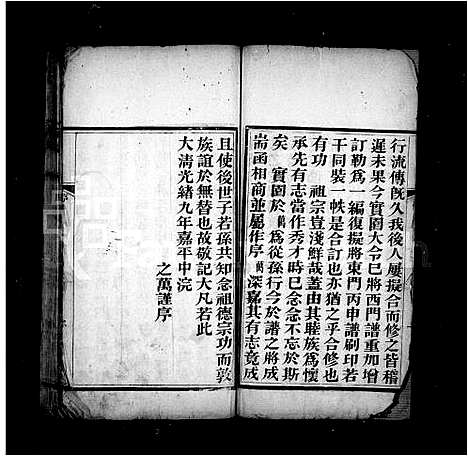 行流傳既久我後人屢擬合而修之皆稽
遲未果今實園大令已將西門譜重加增
訂勒為一編復擬將東門丙申譜刷印若
干同裝一帙是合訂也亦猶之乎合修也
有功　祖宗豈淺鮮哉蓋由其睦族為懷
承先有志當作秀才時已念念不忘於斯
矣　實園於萬為從孫行今於譜之將成
耑函相商並屬作序萬深嘉其有志竟成
且使後世子若孫共知念祖德宗功而敦
族誼於無替也故敬記大凡若此
大清光緒九年嘉平中浣
之萬謹序